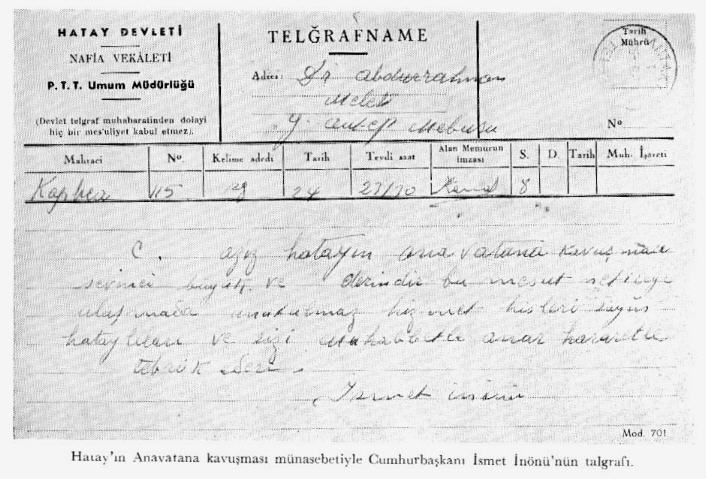 HATAY DEVLETİ
NAFİA VEKÂLETİ
P. T. T. Umum Müdürlüğü
(Devlet telgraf muhaberatından dolayi
hiç bir mes'uliyet kabul etmez).
TELĞRAFNAME
Adres: Dr abdurrahman
Melek
g. antep Mebusu
Tarih
Mühru
No
Mahraci No. Kelime adedi Tarih Tevdi saat Alan Memurun imzası S. D. Tarih Muh. İşareti
115 24 Kemal 8
C. aziz hatayın anavatana kavuşması
sevinci büyük ve derindir bu mesut neticeye
ulaşmada unutulmaz hizmet hisleri
hataylıları ve sizi muhabbetle anar hararetle
tebrik ederi
İsmet inönü
Mod. 701
Hatay'ın Anavatana kavuşması münasebetiyle Cumhurbaşkanı İsmet İnönü'nün talgrafı.